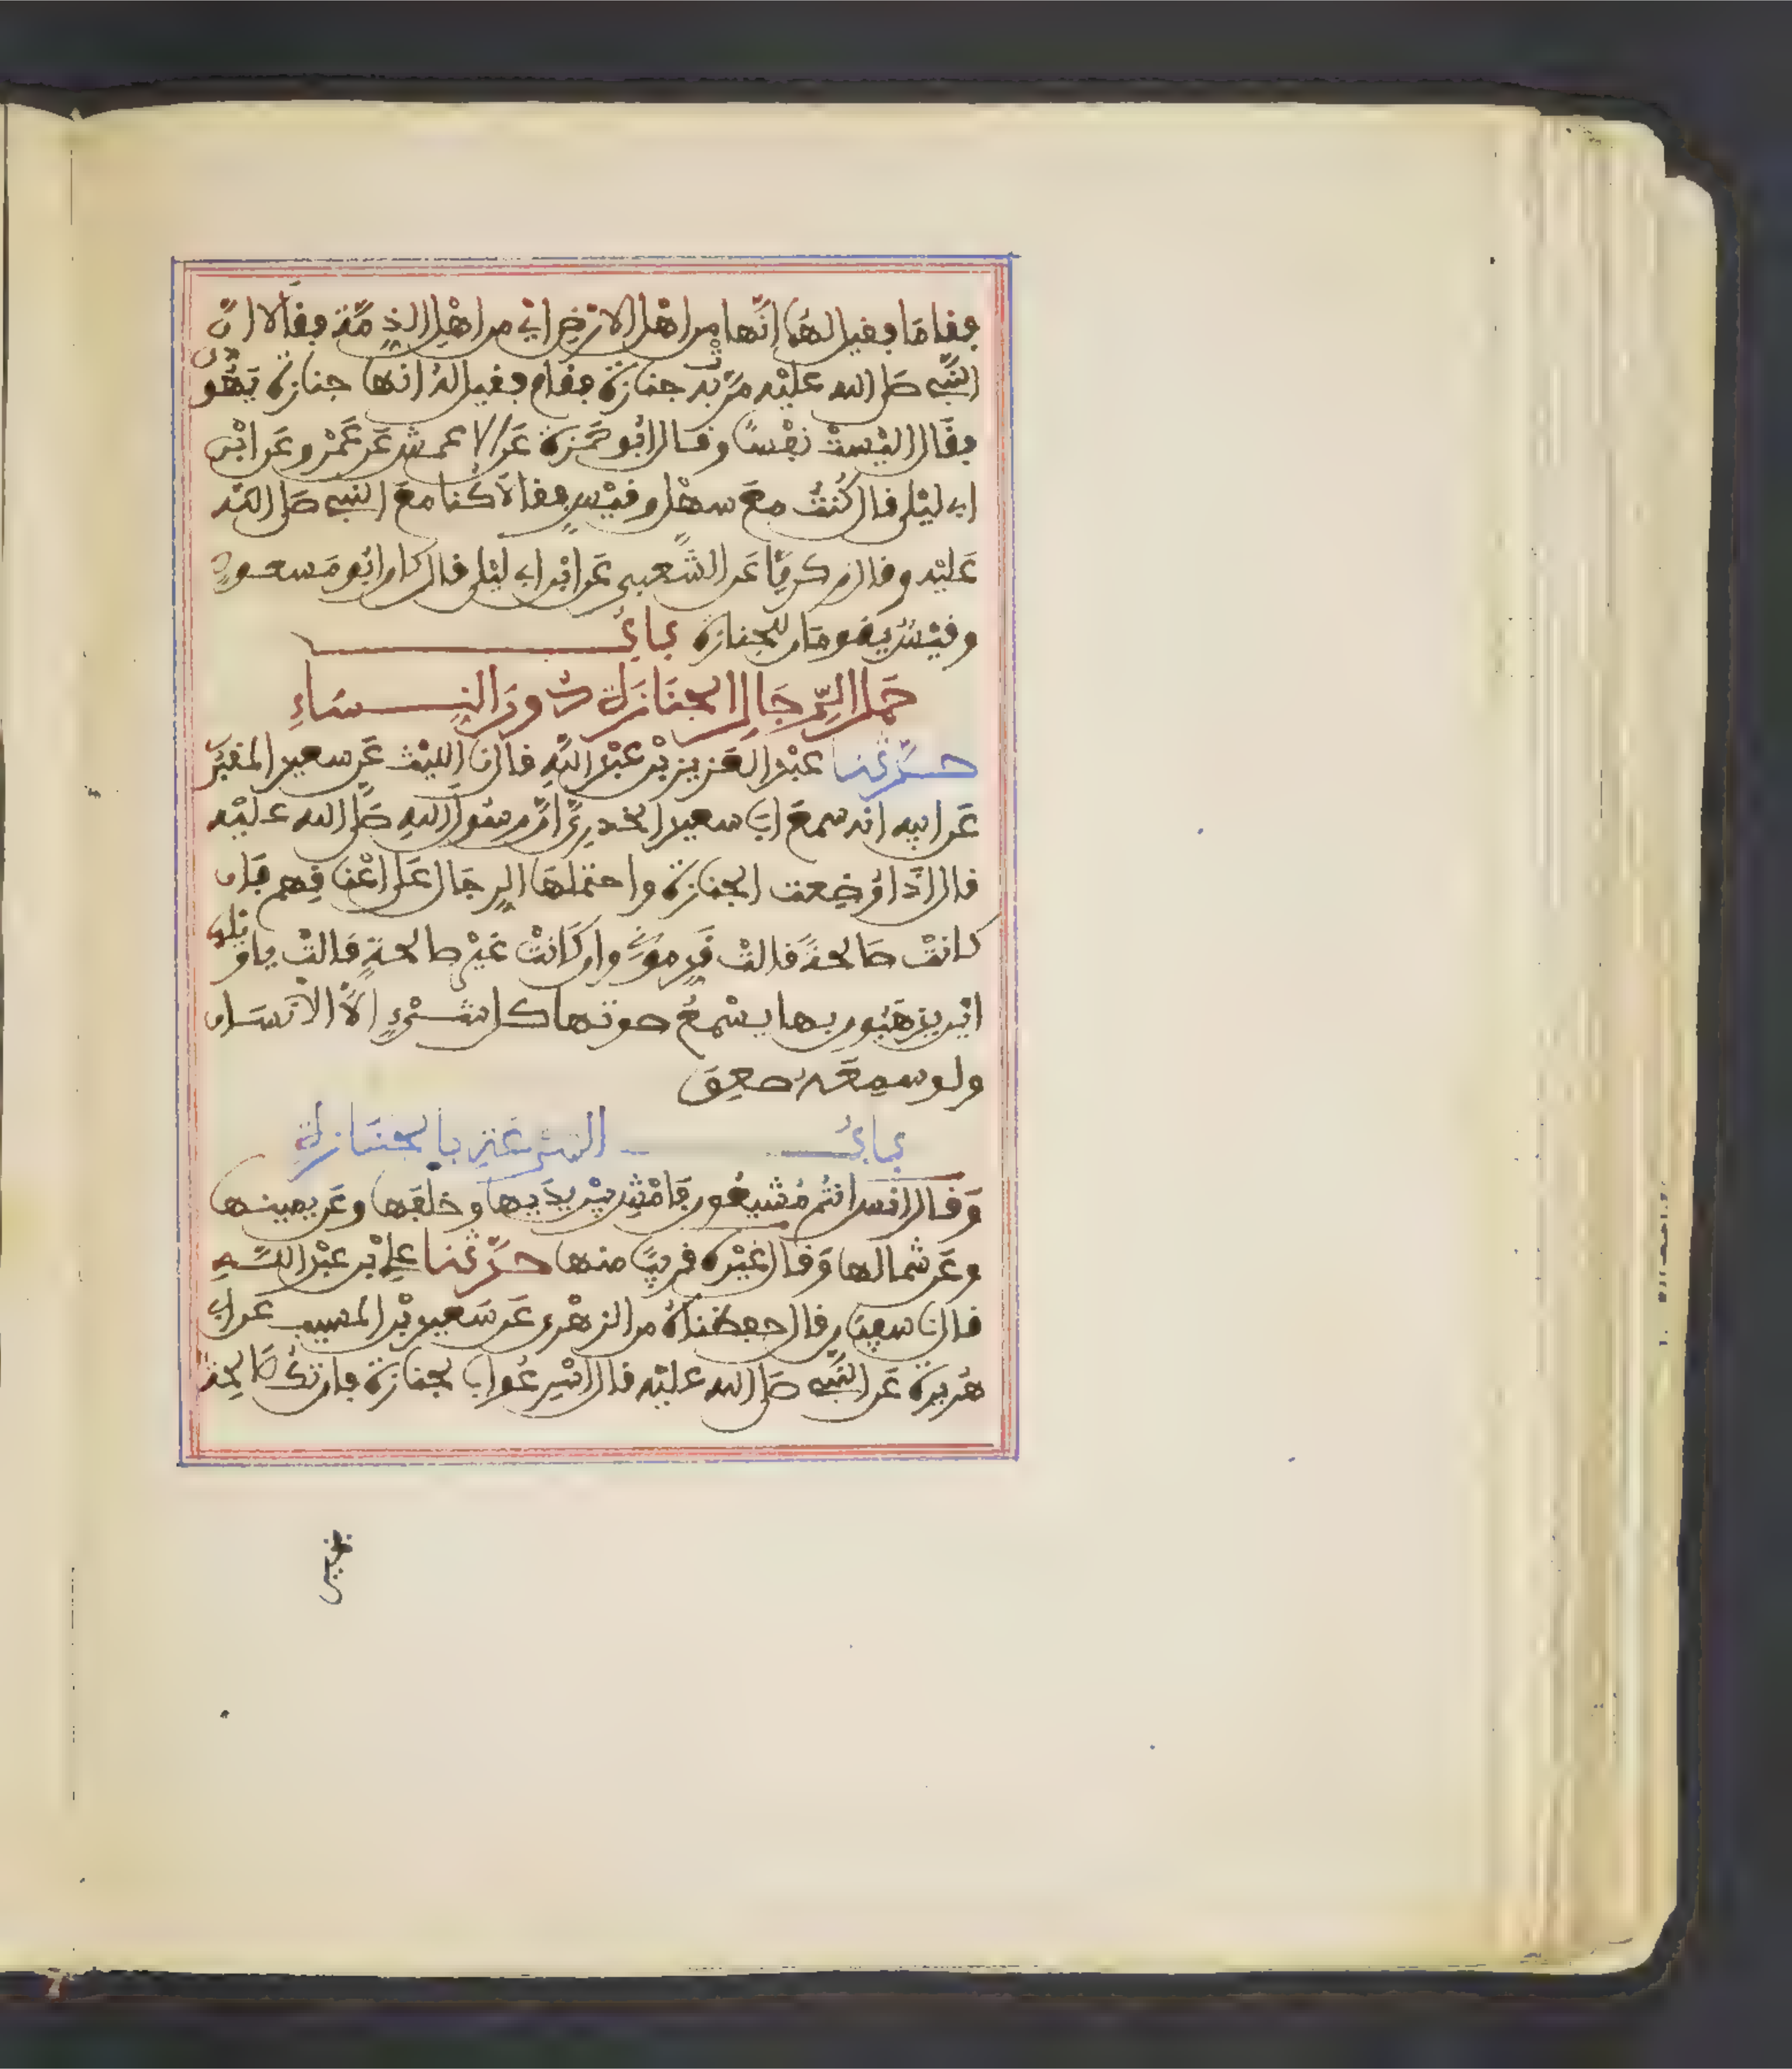 فقاما فقيل لهما إنّها من اهل الارض اي من اهل الذمّة فقالا انّ
النبي صلى الله عليه مرّت به جنازة فقام فقيل له انها جنازة يهودي
فقال اليست نفسًا وقال ابو حمزة عن الاعمش عن عمرو عن ابن
ابي ليلى قال كنت مع سهل وقيس فقالا كنا مع النبي صلى الله
عليه وقال زكرياء عن الشعبي عن ابن ابي ليلى قال كان ابو مسعود
وقيس يقومان للجنازة باب
حمل الرّجال الجنازة دون النساء
حدّثنا عبد العزيز بن عبد الله قال نا الليث عن سعيد المقبري
عن ابيه انه سمع ابا سعيد الخدريّ انّ رسول الله صلى الله عليه
قال اذا وضعت الجنازة واحتملها الرجال على اعناقهم فان
كانت صالحة قالت قدموني وان كانت غير صالحة قالت يا ويلها
اين يذهبون بها يسمع صوتها كل شيء الا الانسان
ولو سمعه صعق
باب السرعة بالجنازة
وقال انس انتم مشيعون فامش بين يديها وخلفها وعن يمينها
وعن شمالها وقال غيره قريبًا منها حدّثنا علي بن عبد الله
قال نا سفيان قال حفظناه من الزهري عن سعيد بن المسيب عن ابي
هريرة عن النبي صلى الله عليه قال اسرعوا بالجنازة فان تك صالحة
فخير